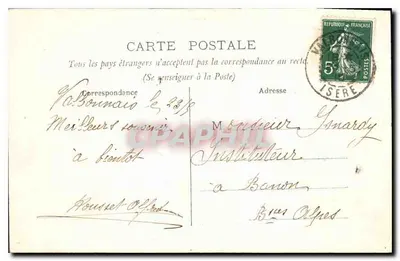 CARTE POSTALE
Tous les pays étrangers n'acceptent pas la correspondance au recto
(Se renseigner à la Poste)
Correspondance
Adresse
REPUBLIQUE FRANÇAISE
5c
POSTES
ISERE
Valbonnais le 23/8
Meilleurs souvenirs
à bientot
Monsieur Isnardy
Instituteur
à Banon
Bses Alpes
CPAPHIL